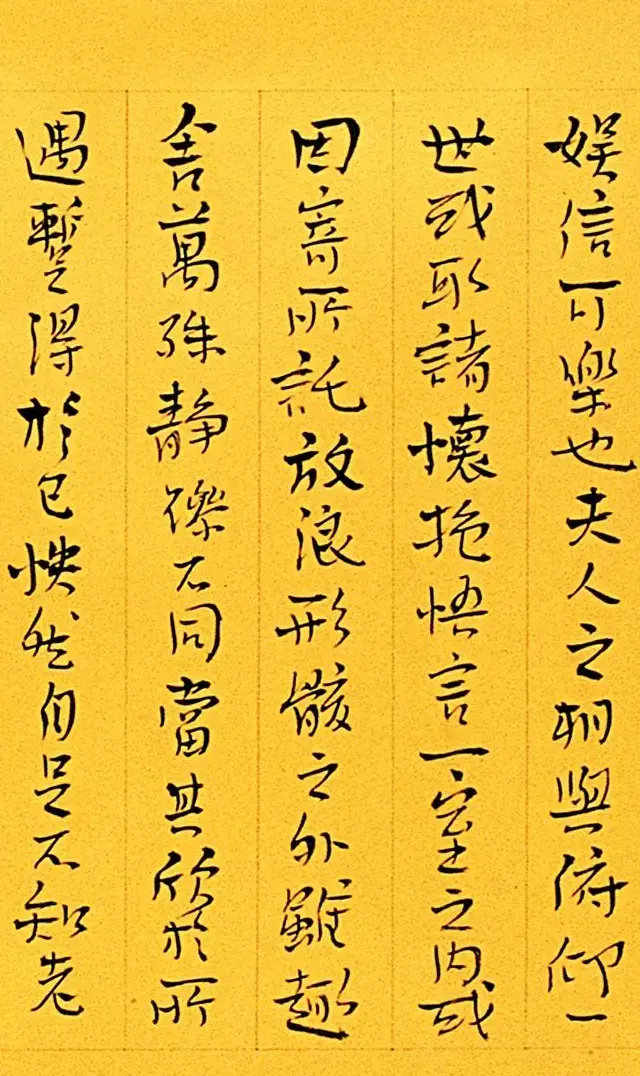 娱信可樂也夫人之相與俯仰一
世或取諸懷抱悟言一室之内或
因寄所託放浪形骸之外雖趣
舍萬殊静躁不同當其欣於所
遇暫得於己怏然自足不知老